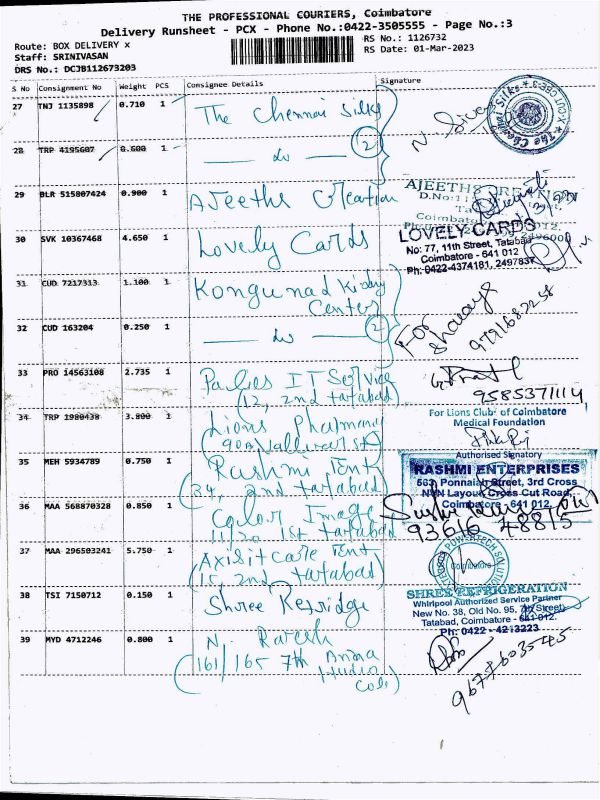 THE PROFESSIONAL COURIERS, Coimbatore
Delivery Runsheet - PCX - Phone No.:0422-3505555 - Page No.:3
Route: BOX DELIVERY x
RS No.: 1126732
Staff: SRINIVASAN
RS Date: 01-Mar-2023
DRS No.: DCJB112673203
S No Consignment No Weight PCS Consignee Details Signature
27 TNJ 1135898 0.710 1 The Chennai Silks
28 TRP 4195607 0.600 1 — do — 2
29 BLR 515807424 0.900 1 Ajeeths Creation
AJEETHS CREATION
D.No:11
Coimbatore
30 SVK 10367468 4.650 1 Lovely Cards
LOVELY CARDS
No: 77, 11th Street, Tatabad
Coimbatore - 641 012
Ph: 0422-4374161, 2497837
31 CUD 7217313 1.100 1 Kongunad Kidney
Center
32 CUD 163204 0.250 1 — do — 2
For
9791682258
33 PRO 14563108 2.735 1
IT Service
(12, 2nd tatabad)
9585371114
34 TRP 1980438 3.800 1 Lions
For Lions Club of Coimbatore
Medical Foundation
Authorised Signatory
35 MEH 5934789 0.750 1 Rashmi Ent
(34, 2nd tatabad)
RASHMI ENTERPRISES
553, Ponnaiah Street, 3rd Cross
NVN Layout, Cross Cut Road,
Coimbatore - 641 012.
36 MAA 568870328 0.850 1 Color Image
11/20 1st tatabad
93616 48815
37 MAA 296503241 5.750 1
(15, 2nd, tatabad)
POWERTECH SOLUTION
Coimbatore
38 TSI 7150712 0.150 1 Shree Refridge
SHREE REFRIGERATION
Whirlpool Authorized Service Partner
New No. 38, Old No. 95, 7th Street,
Tatabad, Coimbatore - 641 012.
Ph: 0422 - 4213223
39 MYD 4712246 0.800 1 N.
(161/165 7th
9677603545